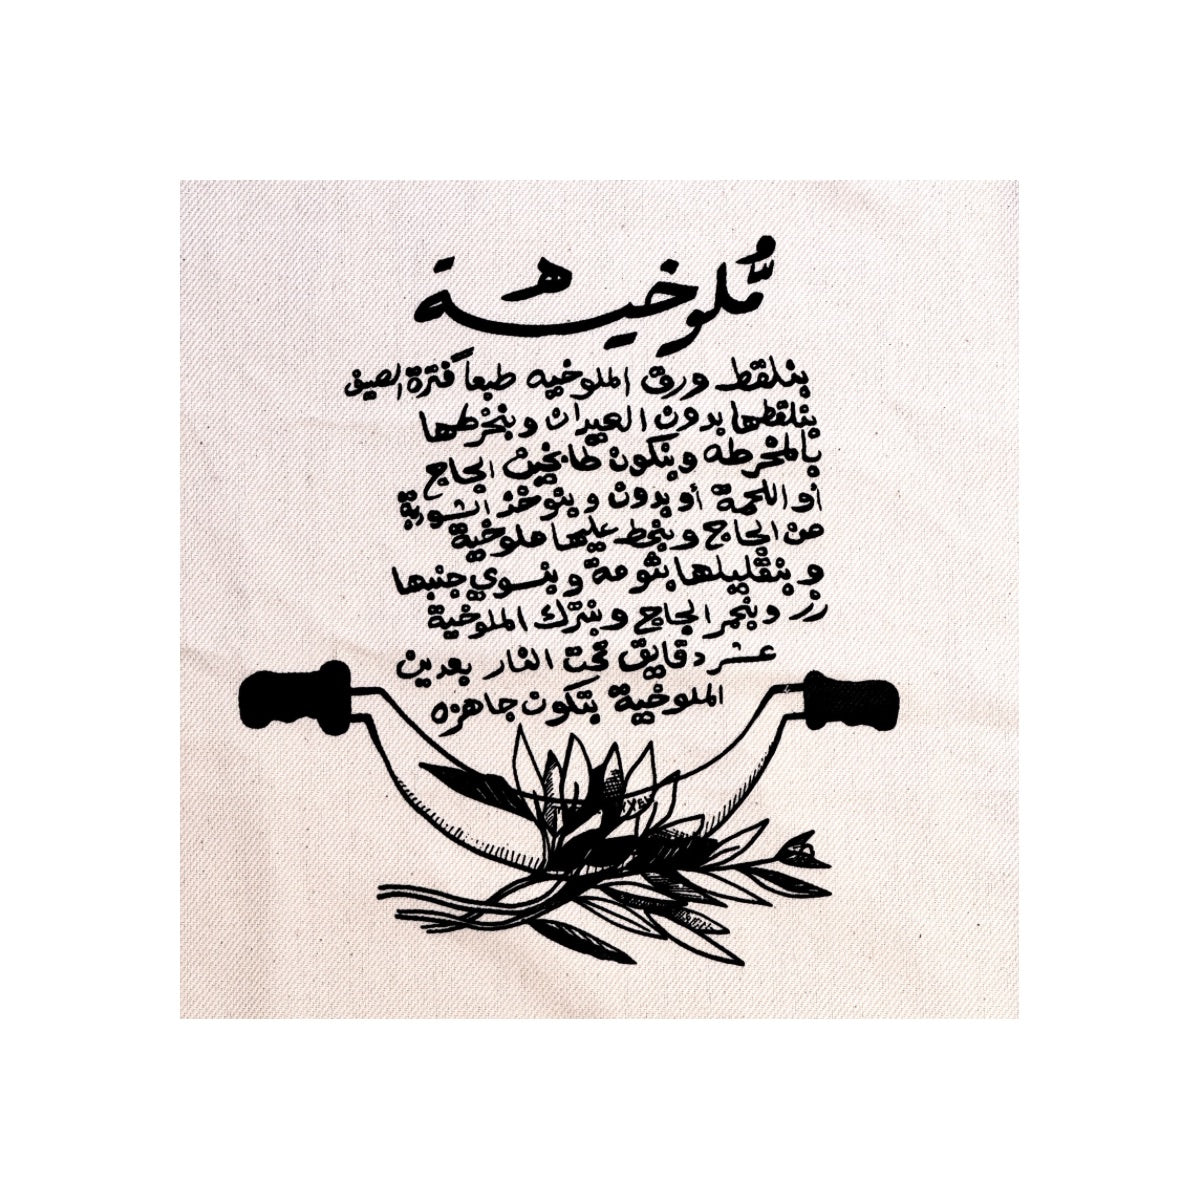 مُّلوخية
بنلقط ورق الملوخيه طبعاً فترة الصيف
بنلقطها بدون العيدان وبنخرطها
بالمخرطه وبنكون طابخين الجاج
أو اللحمة أو بدون وبنوخذ الشوربة
من الجاج وبنحط عليها ملوخية
وبنقليلها بثومة وبنسوي جنبها
رز وبنحمر الجاج وبنترك الملوخية
عشر دقايق تحت النار بعدين
الملوخية بتكون جاهزه